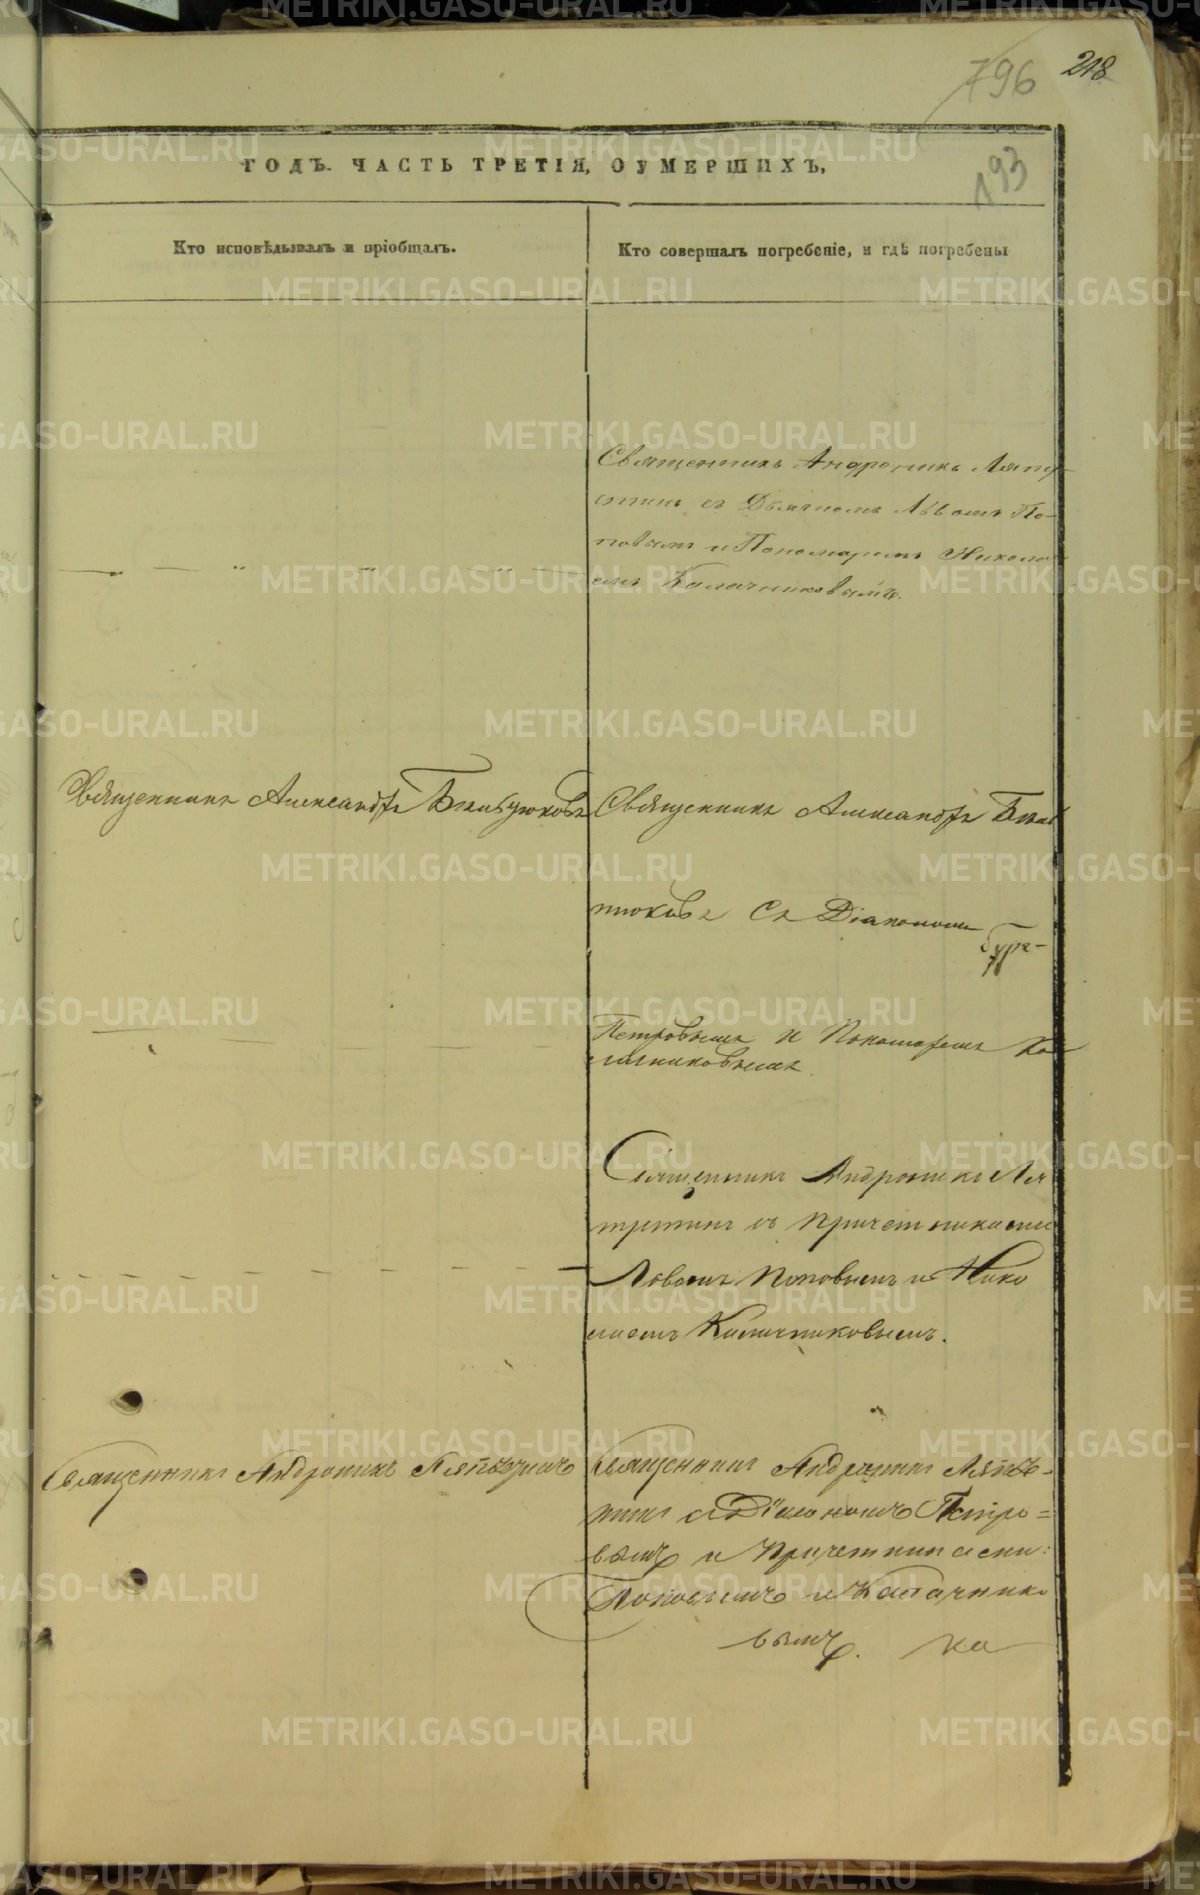 796 218
193
ГОДЪ. ЧАСТЬ ТРЕТІЯ, О УМЕРШИХЪ,
Кто исповѣдывалъ и пріобщалъ.
Кто совершалъ погребеніе, и гдѣ погребены
Священникъ Андроникъ Ляпу-
стинъ съ Дьячкомъ Львомъ По-
повымъ и Пономаремъ Никола-
емъ Калачниковымъ.
Священникъ Александръ
Священникъ Александръ
съ Діакономъ
Петровымъ и Пономаремъ Ка-
лачниковымъ
Священникъ Андроникъ Ля
пустинъ съ причетниками
Львомъ Поповымъ и Нико
лаемъ Калачниковымъ.
Священникъ Андроникъ
Священникъ Андроникъ
съ Діакономъ Петро=
вымъ и Причетниками:
Поповымъ и Калачнико
вымъ. ка
METRIKI.GASO-URAL.RU